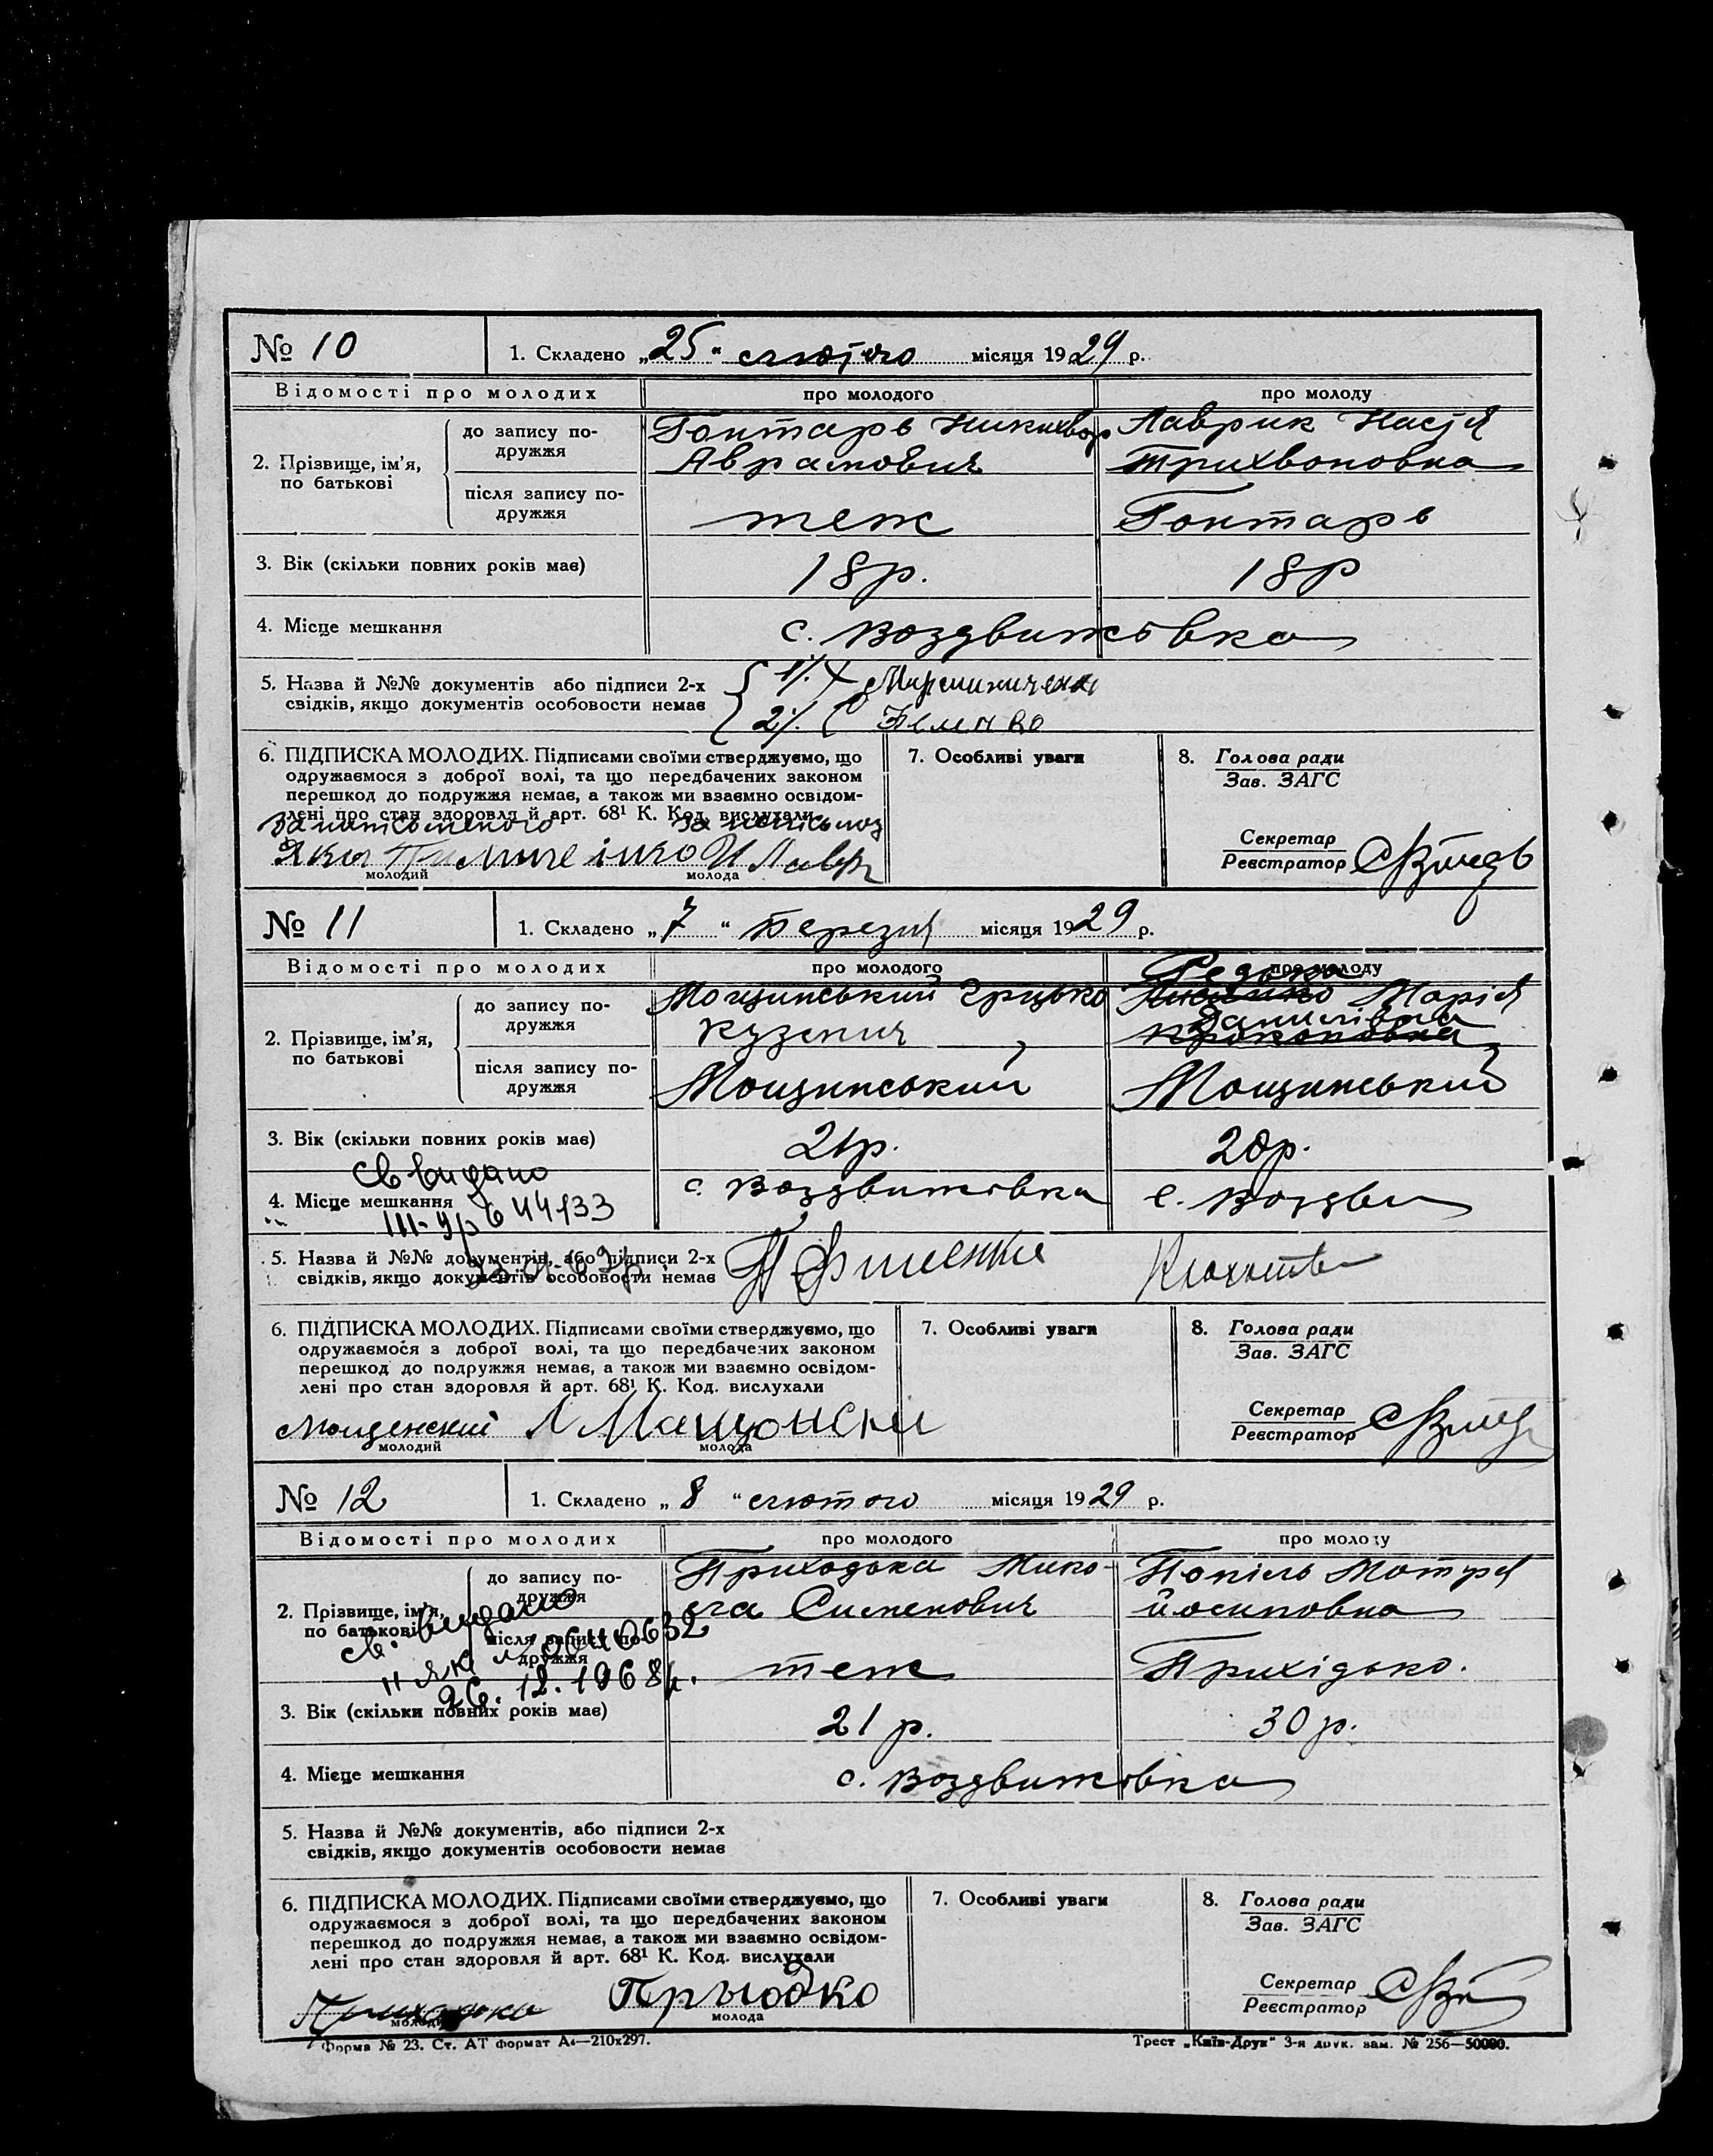 № 10
1. Складено „25“ лютого місяця 1929 р.
Відомості про молодих
про молодого
про молоду
2. Прізвище, ім'я, по батькові
до запису по-
дружжя
Гонтарь Никихвор
Аврамович
Лаврик Настя
Трихвоновна
після запису по-
дружжя
теж
Гонтарь
3. Вік (скільки повних років має)
18р.
18р
4. Місце мешкання
с. Воздвижівка
5. Назва й №№ документів або підписи 2-х
свідків, якщо документів особовости немає
1).
2).
6. ПІДПИСКА МОЛОДИХ. Підписами своїми стверджуємо, що
одружаємося з доброї волі, та що передбачених законом
перешкод до подружжя немає, а також ми взаємно освідом-
лені про стан здоровля й арт. 68¹ К. Код. вислухали
молодий
молода
7. Особливі уваги
8. Голова ради
Зав. ЗАГС
Секретар
Реєстратор
№ 11
1. Складено „7“ Березня місяця 1929 р.
Відомості про молодих
про молодого
про молоду
2. Прізвище, ім'я,
по батькові
до запису по-
дружжя
Мощинський Грицько
Кузьмич
Редька
Марія
Данилівна
Прокоповна
після запису по-
дружжя
Мощинський
Мощинський
3. Вік (скільки повних років має)
21р.
20р.
Св видано
4. Місце мешкання
с. Воздвижівка
с. Воздви
44133
5. Назва й №№ документів, або підписи 2-х
свідків, якщо документів особовости немає
6. ПІДПИСКА МОЛОДИХ. Підписами своїми стверджуємо, що
одружаємося з доброї волі, та що передбачених законом
перешкод до подружжя немає, а також ми взаємно освідом-
лені про стан здоровля й арт. 68¹ К. Код. вислухали
Мощенский
молодий
молода
7. Особливі уваги
8. Голова ради
Зав. ЗАГС
Секретар
Реєстратор
№ 12
1. Складено „8“ лютого місяця 1929 р.
Відомості про молодих
про молодого
про молоду
2. Прізвище, ім'я,
по батькові
до запису по-
дружжя
Приходька Мико-
ла Сименович
Попіль Мотря
Йосиповна
св. видано
після запису по-
дружжя
теж
Прихідько.
26.12.1968р.
3. Вік (скільки повних років має)
21 р.
30 р.
4. Місце мешкання
с. Воздвижівка
5. Назва й №№ документів, або підписи 2-х
свідків, якщо документів особовости немає
6. ПІДПИСКА МОЛОДИХ. Підписами своїми стверджуємо, що
одружаємося з доброї волі, та що передбачених законом
перешкод до подружжя немає, а також ми взаємно освідом-
лені про стан здоровля й арт. 68¹ К. Код. вислухали
Приходька
молодий
Прыодко
молода
7. Особливі уваги
8. Голова ради
Зав. ЗАГС
Секретар
Реєстратор
Форма № 23. Ст. АТ формат А₄—210х297.
Трест „Київ-Друк“ 3-я друк. зам. № 256—50000.